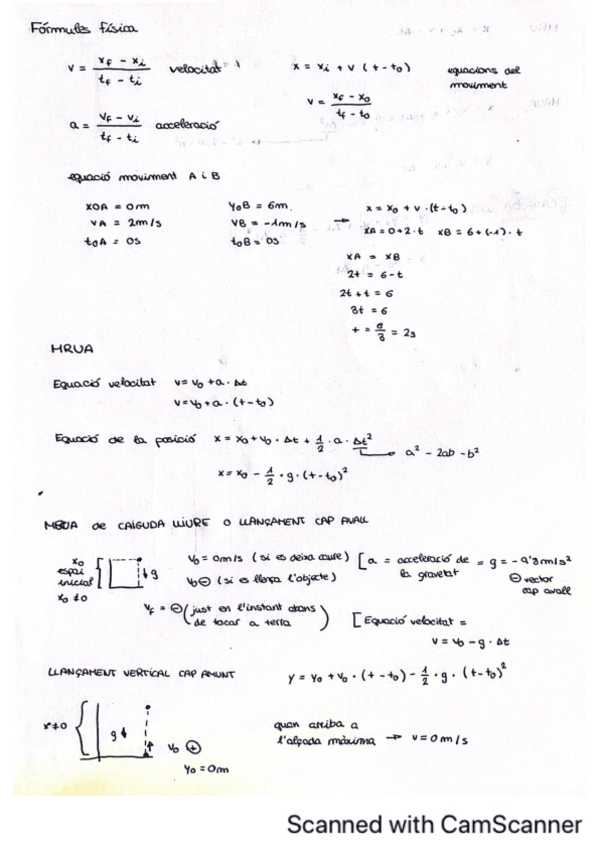 Fórmules física
v = xf - xi / tf - ti velocitat
x = xi + v (t - t0) equacions del moviment
v = xf - x0 / tf - t0
a = vf - vi / tf - ti acceleració
equació moviment A i B
x0A = 0m y0B = 6m. x = x0 + v · (t - t0)
vA = 2m/s vB = -1m/s → xA = 0+2·t xB = 6+(-1)·t
t0A = 0s t0B = 0s
xA = xB
2t = 6-t
2t+t = 6
3t = 6
t = 6/3 = 2s
MRUA
Equació velocitat v = v0 + a · Δt
v = v0 + a · (t - t0)
Equació de la posició x = x0 + v0 · Δt + 1/2 · a · Δt² → a² - 2ab - b²
x = x0 - 1/2 · g · (t - t0)²
MRUA de CAIGUDA LLIURE O LLANÇAMENT CAP AVALL
x0 espai inicial x0 ≠ 0
g
v0 = 0m/s (si es deixa caure)
v0 ⊖ (si es llença l'objecte)
[a = acceleració de la gravetat = g = -9'8m/s²
⊖ vector cap avall
vf = ⊖ (just en l'instant abans de tocar a terra)
[Equació velocitat =
v = v0 - g · Δt
LLANÇAMENT VERTICAL CAP AMUNT y = y0 + v0 · (t - t0) - 1/2 · g · (t - t0)²
x ≠ 0
g
v0 ⊕
y0 = 0m
quan arriba a
l'alçada màxima → v = 0m/s
Scanned with CamScanner